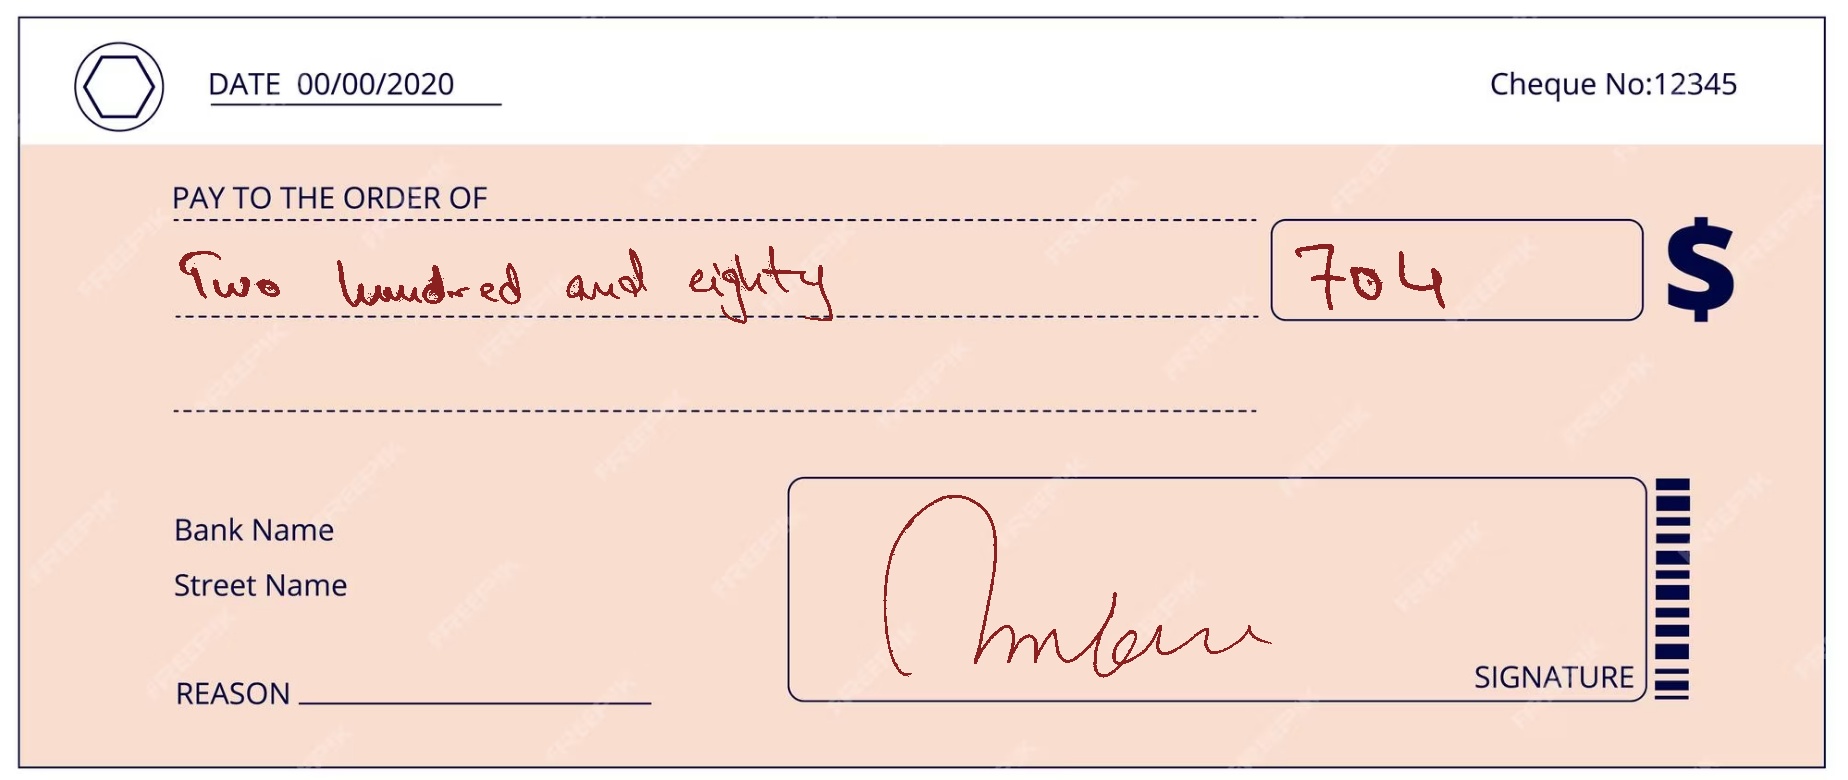 DATE 00/00/2020
Cheque No:12345
PAY TO THE ORDER OF
Two hundred and eighty
704
$
Bank Name
Street Name
REASON
SIGNATURE